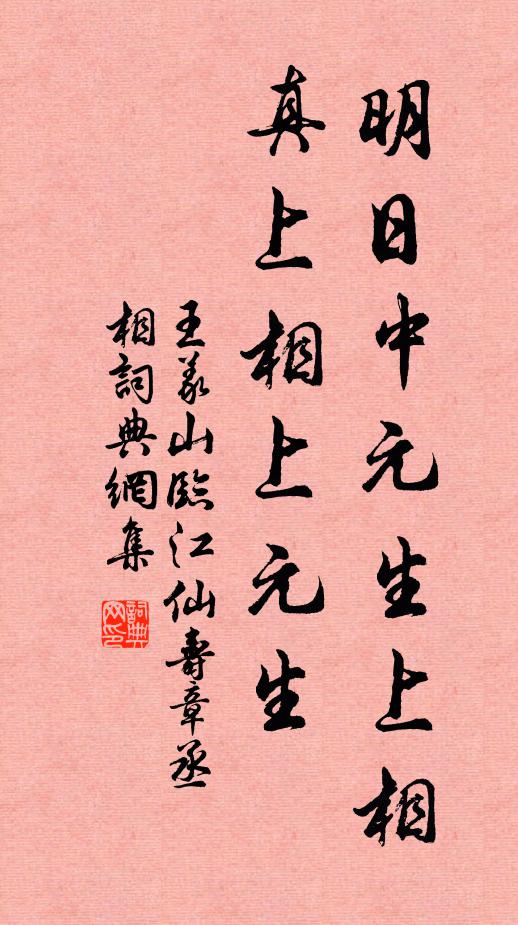 明日中元生上相
真上相上元生
王義山臨江仙壽章丞
相詞典網集
詞典
网印